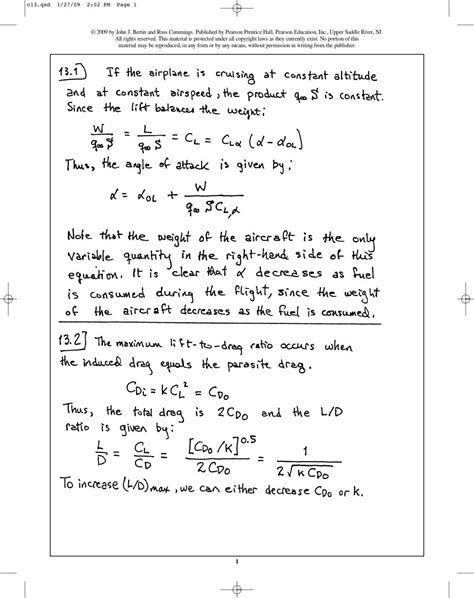 c13.qxd 1/27/09 2:02 PM Page 1
© 2009 by John J. Bertin and Russ Cummings. Published by Pearson Prentice Hall, Pearson Education, Inc., Upper Saddle River, NJ.
All rights reserved. This material is protected under all copyright laws as they currently exist. No portion of this
material may be reproduced, in any form or by any means, without permission in writing from the publisher.
13.1] If the airplane is cruising at constant altitude
and at constant airspeed, the product q∞ S is constant.
Since the lift balances the weight:
W/(q∞ S) = L/(q∞ S) = C_L = C_Lα (α - α_OL)
Thus, the angle of attack is given by:
α = α_OL + W/(q∞ S C_L,α)
Note that the weight of the aircraft is the only
variable quantity in the right-hand side of this
equation. It is clear that α decreases as fuel
is consumed during the flight, since the weight
of the aircraft decreases as the fuel is consumed.
13.2] The maximum lift-to-drag ratio occurs when
the induced drag equals the parasite drag.
C_Di = k C_L² = C_Do
Thus, the total drag is 2C_Do and the L/D
ratio is given by:
L/D = C_L/C_D = [C_Do/k]^0.5 / 2C_Do = 1/(2√(k C_Do))
To increase (L/D)max, we can either decrease C_Do or k.
1